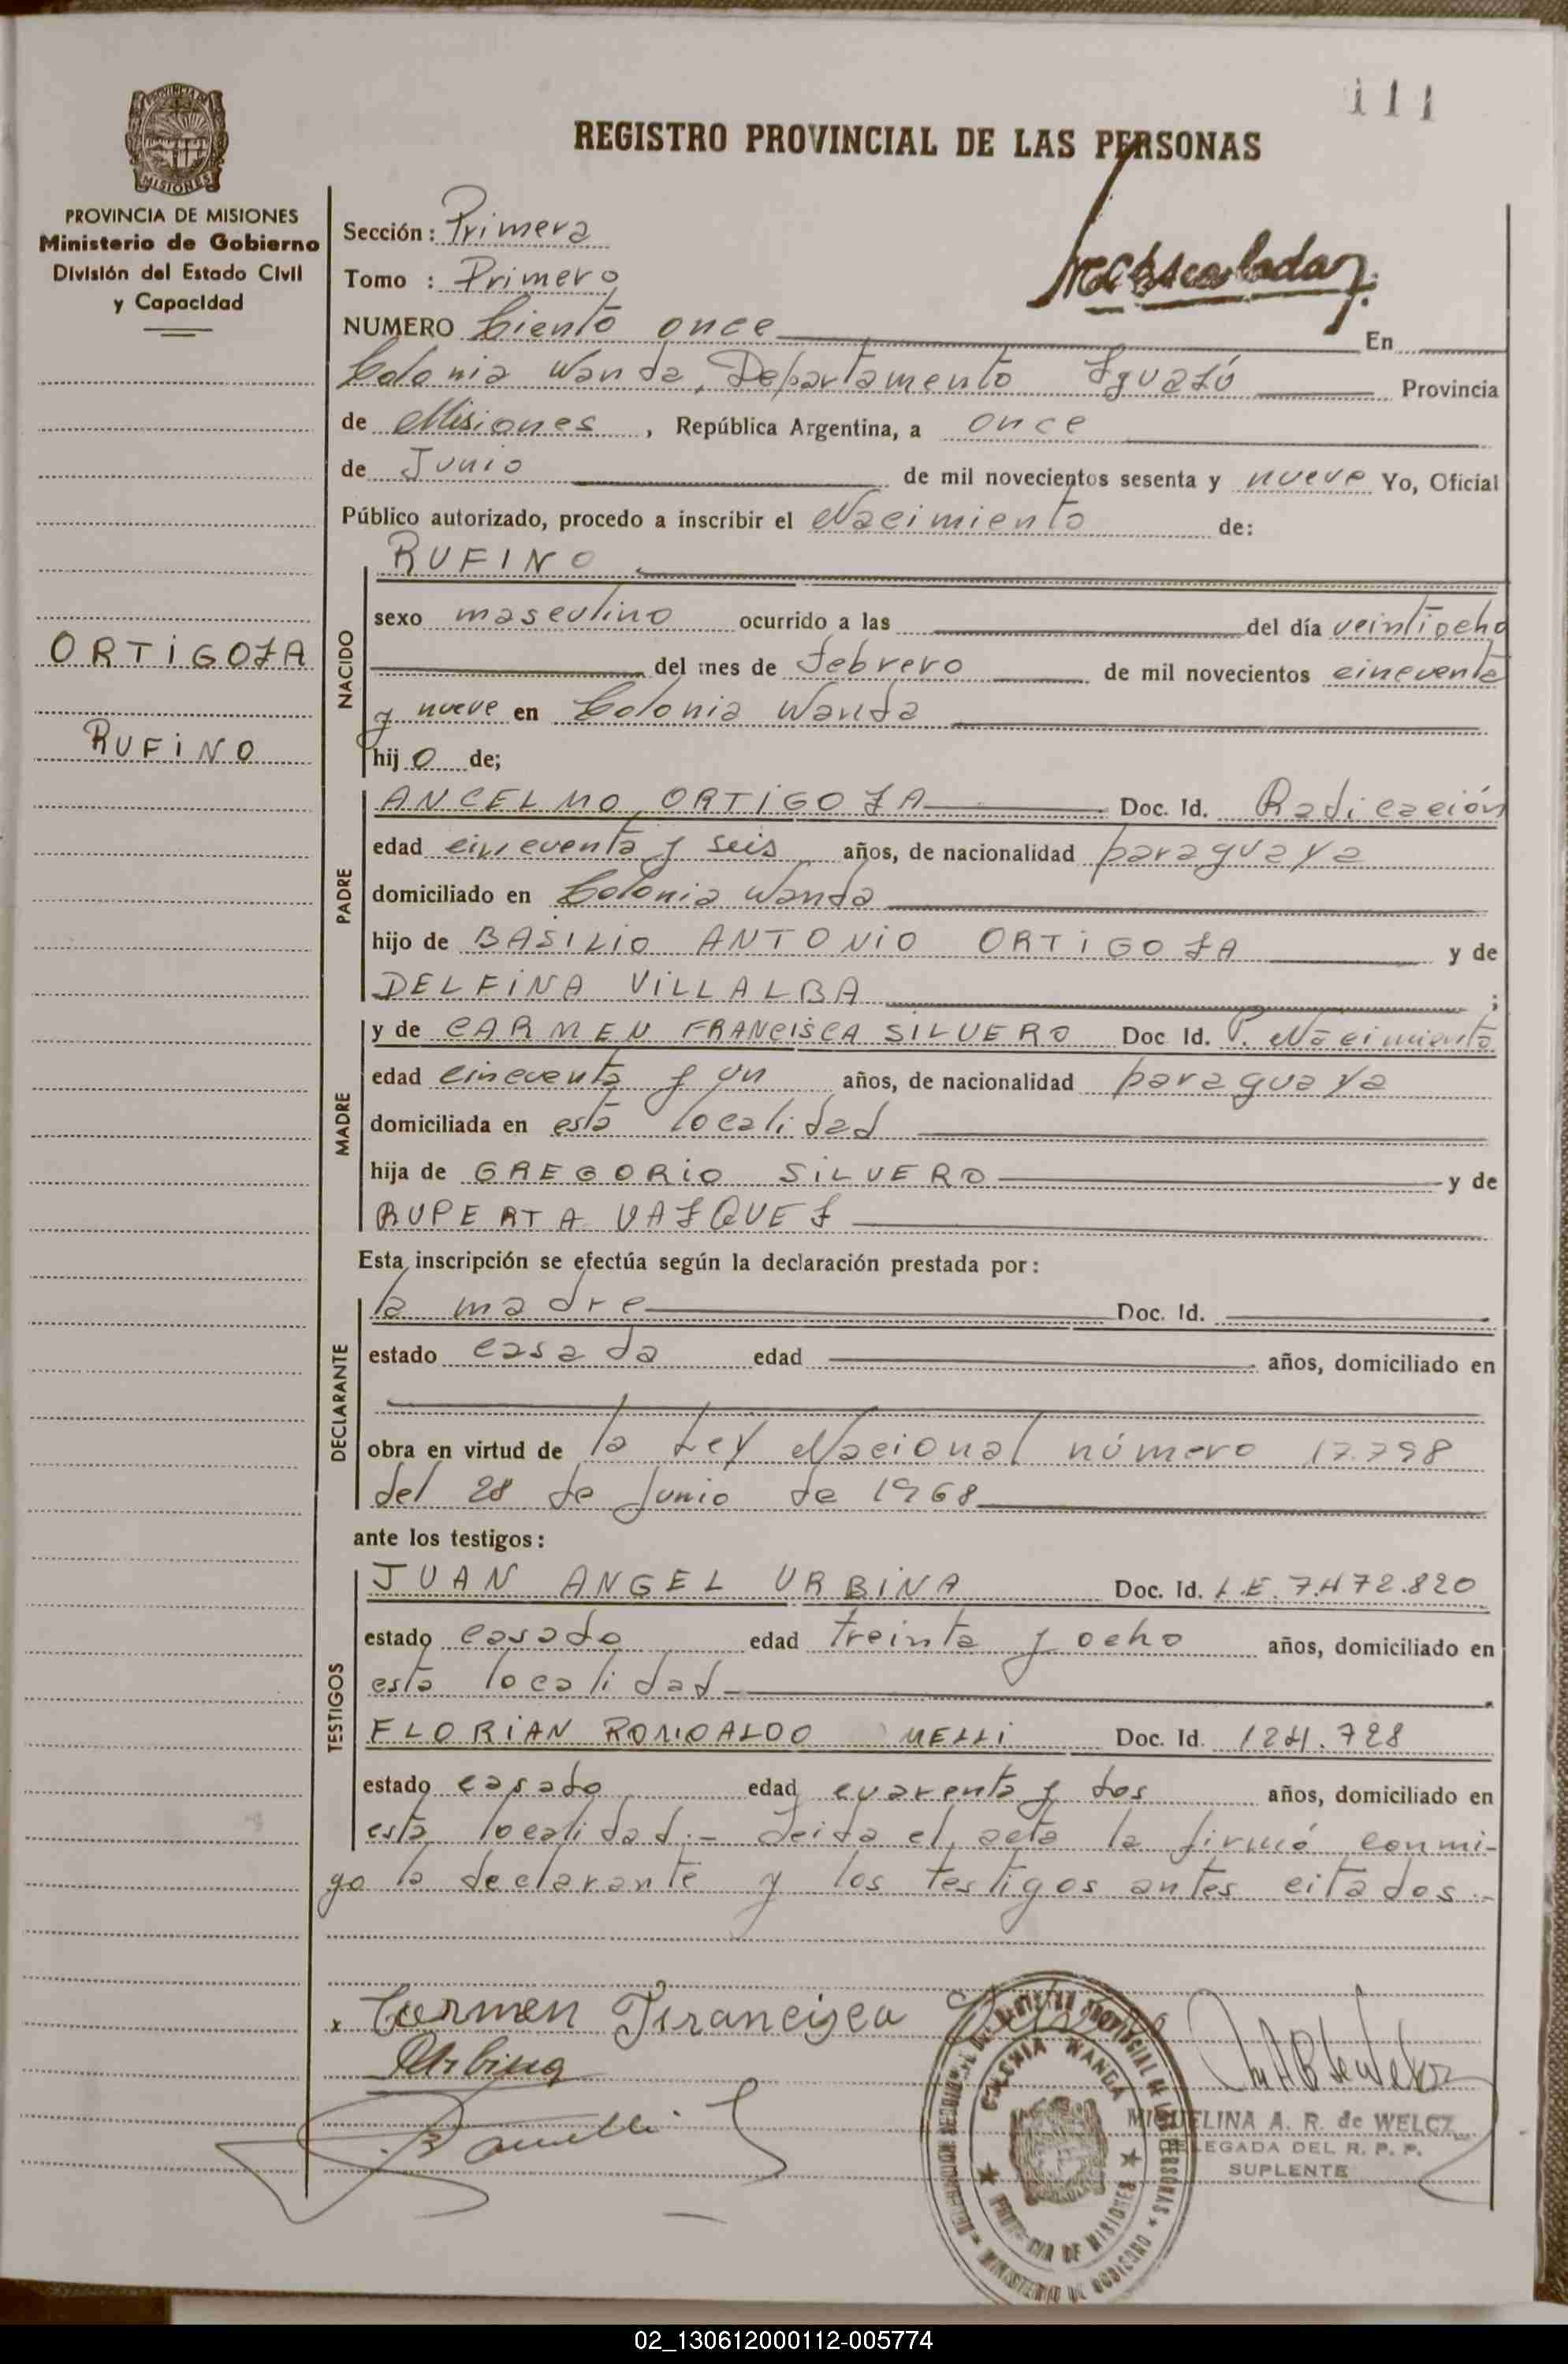 111
REGISTRO PROVINCIAL DE LAS PERSONAS
PROVINCIA DE MISIONES
Ministerio de Gobierno
División del Estado Civil
y Capacidad
Sección: Primera
Tomo : Primero
NUMERO Ciento once En
Colonia Wanda, Departamento Iguazú Provincia
de Misiones, República Argentina, a once
de Junio de mil novecientos sesenta y nueve Yo, Oficial
Público autorizado, procedo a inscribir el Nacimiento de:
ORTIGOZA
RUFINO
NACIDO
RUFINO
sexo masculino ocurrido a las del día veintiocho
del mes de febrero de mil novecientos cincuenta
y nueve en Colonia Wanda
hijo de;
PADRE
ANCELMO ORTIGOZA Doc. Id. Radicación
edad cincuenta y seis años, de nacionalidad paraguaya
domiciliado en Colonia Wanda
hijo de BASILIO ANTONIO ORTIGOZA y de
DELFINA VILLALBA ;
MADRE
y de CARMEN FRANCISCA SILVERO Doc Id. P. Nacimiento
edad cincuenta y un años, de nacionalidad paraguaya
domiciliada en esta localidad
hija de GREGORIO SILVERO y de
RUPERTA VAZQUEZ
Esta inscripción se efectúa según la declaración prestada por:
DECLARANTE
la madre Doc. Id.
estado casada edad años, domiciliado en
obra en virtud de la Ley Nacional número 17.798
del 28 de Junio de 1968
ante los testigos:
TESTIGOS
JUAN ANGEL URBINA Doc. Id. L.E. 7.472.820
estado casado edad treinta y ocho años, domiciliado en
esta localidad
FLORIAN ROMOALDO MELLI Doc. Id. 124.728
estado casado edad cuarenta y dos años, domiciliado en
esta localidad.- Leida el acta la firmó conmi-
go la declarante y los testigos antes citados.-
x Carmen Francisca
Urbina
COLONIA WANDA
PROVINCIA DE MISIONES
MINISTERIO DE GOBIERNO
MIGUELINA A. R. de WELCZ
DELEGADA DEL R. P. P.
SUPLENTE
02_130612000112-005774